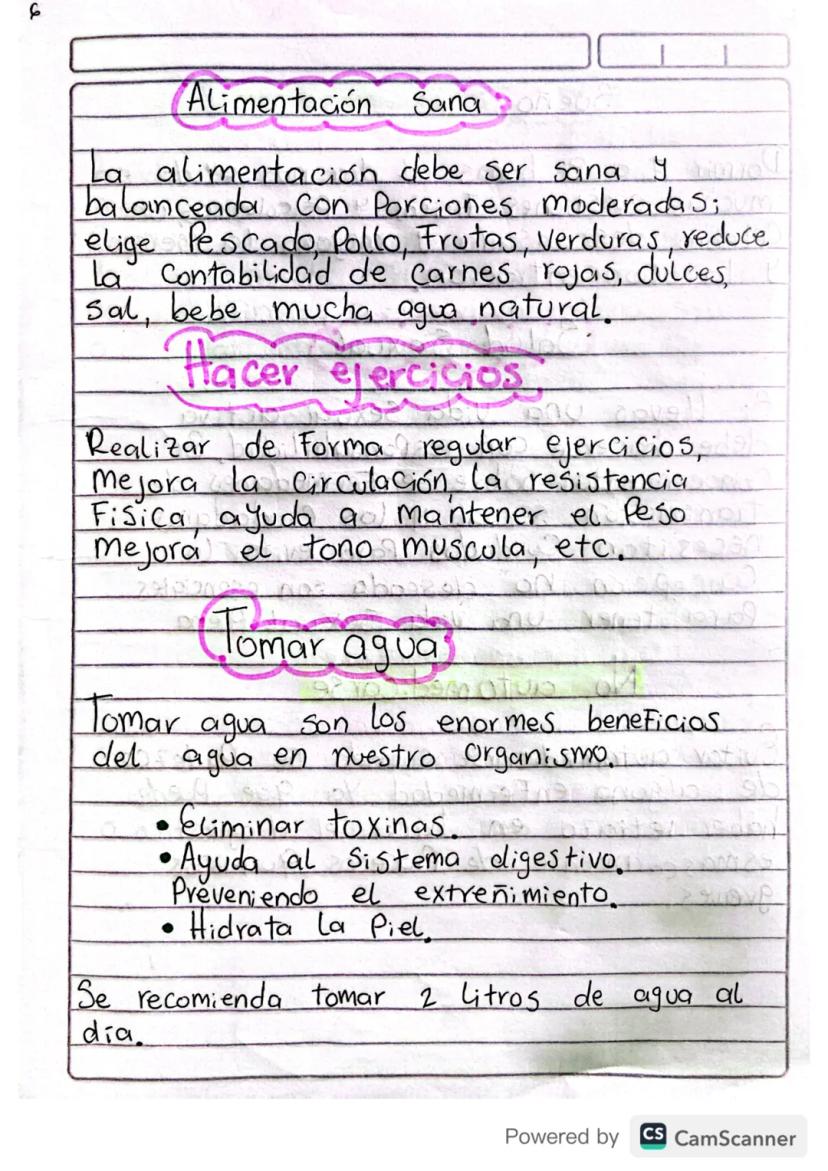 Alimentación Sana
La alimentación debe ser sana y
balanceada con Porciones moderadas;
elige Pescado, Pollo, Frutas, verduras, reduce
la contabilidad de carnes rojas, dulces,
sal, bebe mucha agua natural.
Hacer ejercicios
Realizar de Forma regular ejercicios,
mejora la circulación, la resistencia
Fisica, ayuda a mantener el Peso
mejora el tono muscula, etc.
Tomar agua
Tomar agua son los enormes beneficios
del agua en nuestro organismo.
• Eliminar toxinas.
• Ayuda al sistema digestivo.
Preveniendo el extreñimiento.
• Hidrata la Piel.
Se recomienda tomar 2 litros de agua al
día.
Powered by CS CamScanner